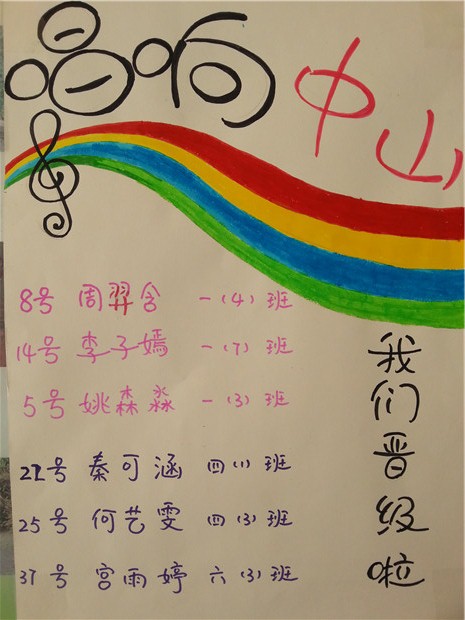 唱响中山
8号 周羿含 一(4)班
14号 李子嫣 一(7)班
5号 姚森淼 一(3)班
22号 秦可涵 四(1)班
25号 何艺雯 四(3)班
37号 宫雨婷 六(3)班
我们晋级啦